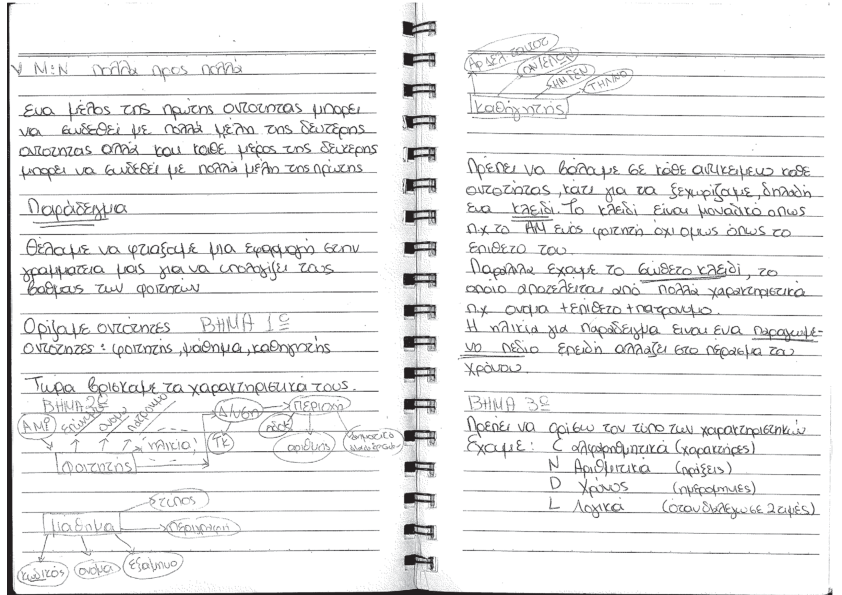 M:N πολλά προς πολλά
ενα μέλος της πρώτης οντότητας μπορεί
να συνδεθεί με πολλά μέλη της δεύτερης
οντότητας αλλά και κάθε μέρος της δεύτερης
μπορεί να συνδεθεί με πολλά μέλη της πρώτης
Παράδειγμα
Θέλουμε να φτιάξουμε μια εφαρμογή στην
γραμματεία μας για να υπολογίζει τους
βαθμους των φοιτητών
Ορίζουμε οντότητες ΒΗΜΑ 1º
οντότητες: φοιτητής, μάθημα, καθηγητής
Τώρα βρίσκουμε τα χαρακτηριστικά τους.
ΒΗΜΑ 2º
επίθετο
ονομα
πατρώνυμο
Δ/νση
περιοχή
ηλικία
ΤΚ
οδός
αριθμός
φοιτητής
τύπος
μάθημα
περιγραφή
κωδικός
ονομα
εξάμηνο
ΤΗΛΙΝΟ
καθηγητής
Πρέπει να βάλουμε σε κάθε αντικείμενο κάθε
οντότητας, κάτι για τα ξεχωρίζουμε, δηλαδή
ενα κλειδί. Το κλειδί είναι μοναδικό οπως
π.χ το ΑΜ ενός φοιτητή όχι ομως όπως το
επίθετο του.
Παράλλα έχουμε το σύνθετο κλειδί, το
οποίο αποτελείται από πολλά χαρακτηριστικά
π.χ. ονομα + επίθετο + πατρωνυμο.
Η ηλικία για παράδειγμα ειναι ενα παραγωμε-
νο πεδίο επειδή αλλάζει στο πέρασμα του
χρόνου.
ΒΗΜΑ 3º
Πρέπει να ορίσω τον τύπο των χαρακτηριστηκών
Εχουμε: C αλφαρηθμητικά (χαρακτήρες)
N Αριθμιτικά (πράξεις)
D Χρόνος (ημερομηνιες)
L Λογικά (όταν διαλέγω σε 2 τιμές)